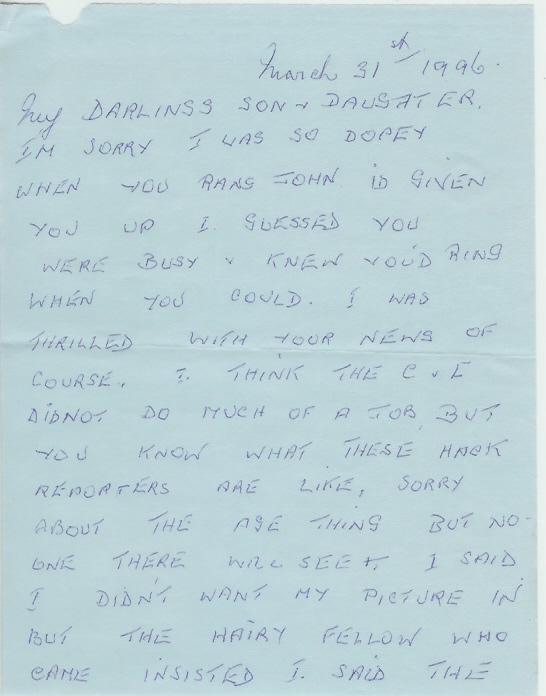 March 31st 1996.
My DARLINGS SON & DAUGHTER.
I'M SORRY I WAS SO DOPEY
WHEN YOU RANG JOHN ID GIVEN
YOU UP I GUESSED YOU
WERE BUSY & KNEW YOU'D RING
WHEN YOU COULD. I WAS
THRILLED WITH YOUR NEWS OF
COURSE. I THINK THE C & E
DIDNOT DO MUCH OF A JOB, BUT
YOU KNOW WHAT THESE HACK
REPORTERS ARE LIKE, SORRY
ABOUT THE AGE THING BUT NO-
ONE THERE WILL SEE IT. I SAID
I DIDN'T WANT MY PICTURE IN
BUT THE HAIRY FELLOW WHO
CAME INSISTED I. SAID THE